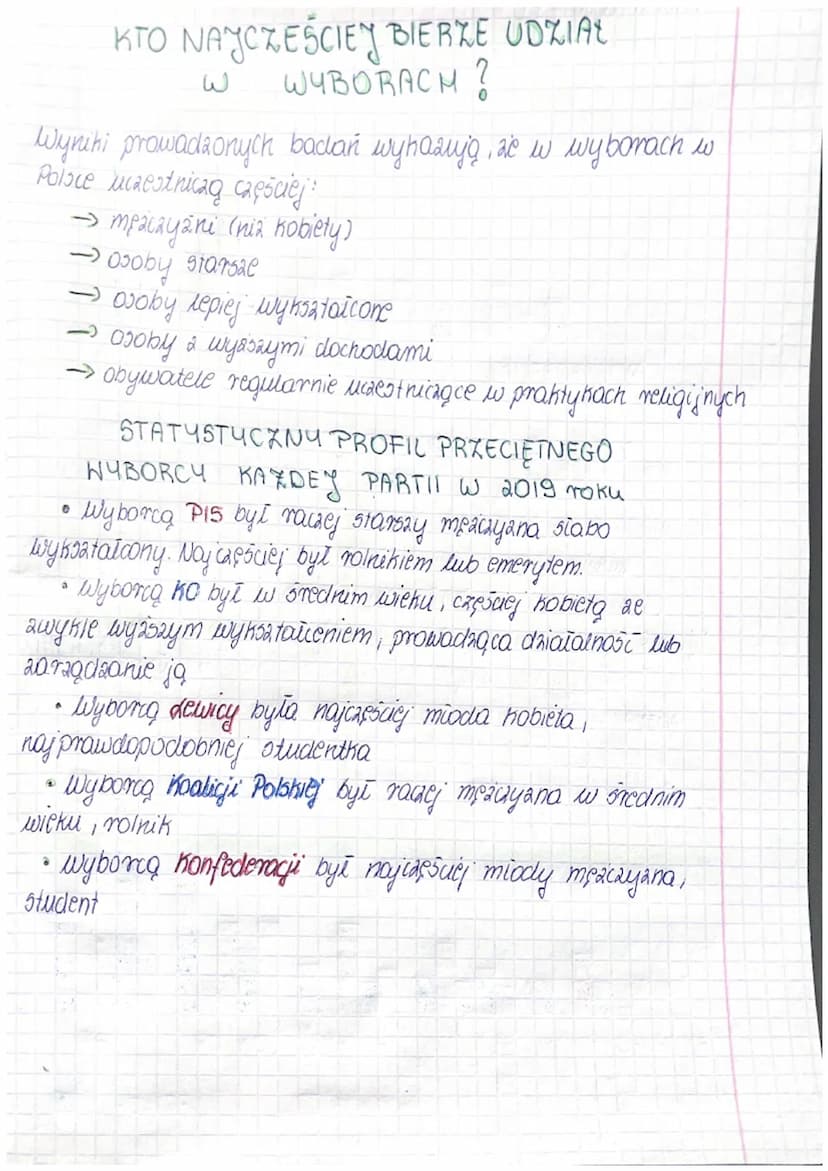 KTO NAJCZĘŚCIEJ BIERZE UDZIAŁ
W WYBORACH?
Wyniki prowadzonych badań wykazują, że w wyborach w
Polsce uczestniczą częściej:
→ mężczyźni (niż kobiety)
→ osoby starsze
→ osoby lepiej wykształcone
→ osoby z wyższymi dochodami
→ obywatele regularnie uczestniczące w praktykach religijnych
STATYSTYCZNY PROFIL PRZECIĘTNEGO
WYBORCY KAŻDEJ PARTII W 2019 roku
• Wyborcą PIS był raczej starszy mężczyzna słabo
wykształcony. Najczęściej był rolnikiem lub emerytem.
• Wyborcą KO był w średnim wieku, częściej kobietą ze
zwykle wyższym wykształceniem, prowadząca działalność lub
zarządzanie ją
• Wyborcą Lewicy była najczęściej młoda kobieta,
najprawdopodobniej studentka
• Wyborcą Koalicji Polskiej był raczej mężczyzna w średnim
wieku, rolnik
• Wyborcą Konfederacji był najczęściej młody mężczyzna,
student